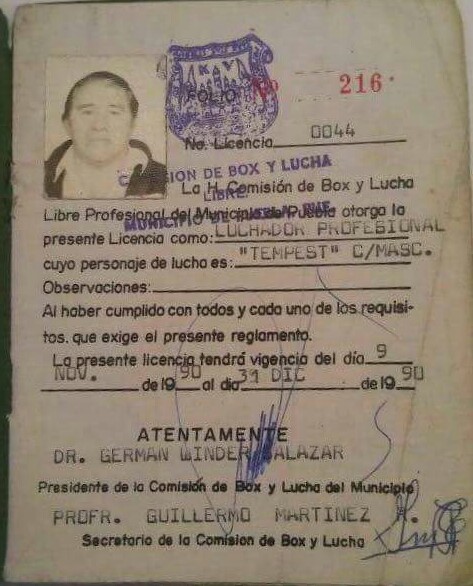 FOLIO No 216
No. Licencia 0044
COMISION DE BOX Y LUCHA
LIBRE
MUNICIPIO DE PUEBLA, PUE.
La H. Comisión de Box y Lucha
Libre Profesional del Municipio de Puebla otorga la
presente Licencia como: LUCHADOR PROFESIONAL
cuyo personaje de lucha es: "TEMPEST" C/MASC.
Observaciones:
Al haber cumplido con todos y cada uno de los requisi-
tos, que exige el presente reglamento.
La presente licencia tendrá vigencia del día 9
NOV. de 1990 al dia 31 DIC de 1990
ATENTAMENTE
DR. GERMAN WINDER SALAZAR
Presidente de la Comisión de Box y Lucha del Municipio
PROFR. GUILLERMO MARTINEZ R.
Secretario de la Comision de Box y Lucha